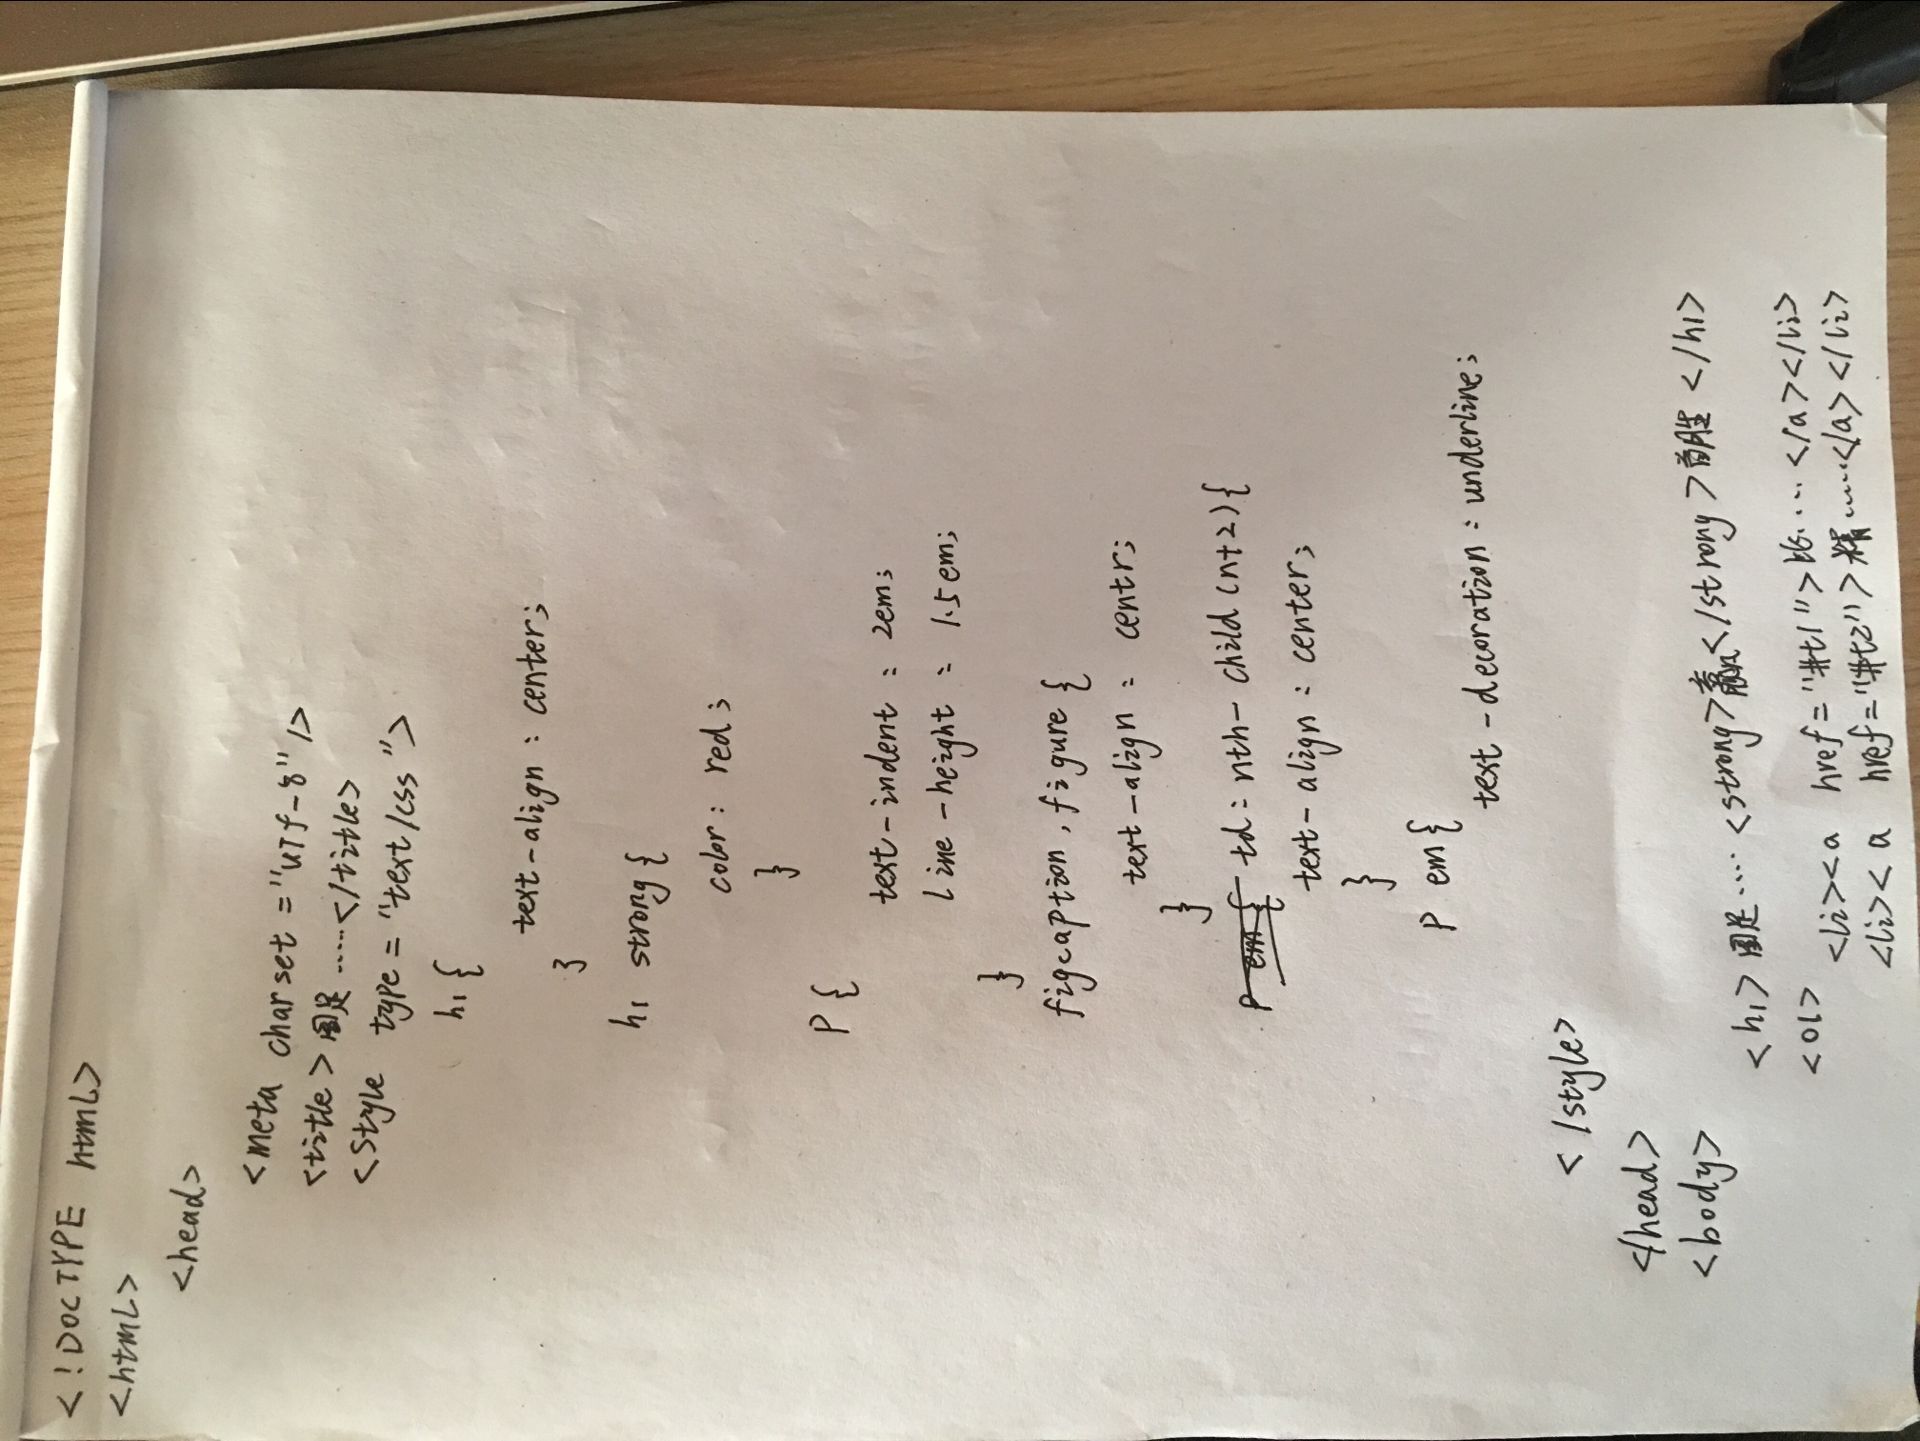 <!DOCTYPE html>
<html>
<head>
<meta charset="UTf-8"/>
<title>国足……</title>
<style type="text/css">
h1{
text-align:center;
}
h1 strong{
color:red;
}
P{
text-indent:2em;
line-height:1.5em;
}
figcaption,figure{
text-align:centr;
}
td:nth-child(n+2){
text-align:center;
}
P em{
text-decoration:underline;
</style>
</head>
<body>
<h1>国足……<strong>赢</strong>首胜</h1>
<ol>
<li><a href="#t1">比……</a></li>
<li><a href="#t2">精……</a></li>